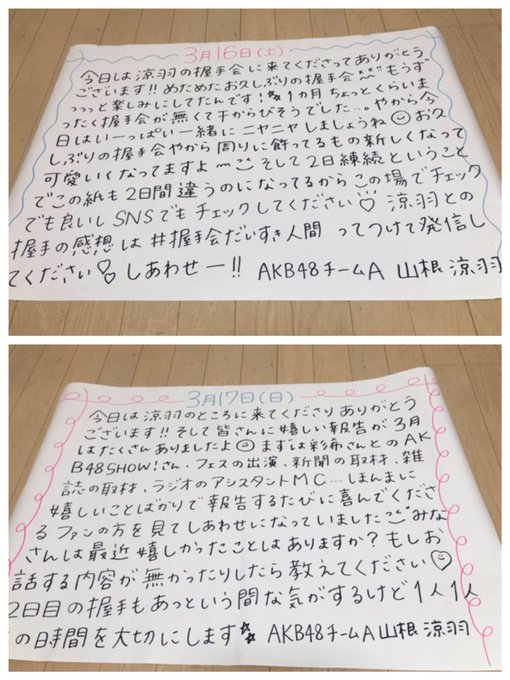 3月16日(土)
今日は涼羽の握手会に来てくださってありがとう
ございます!!めためたお久しぶりの握手会 もうず
っっっと楽しみにしてたんです!1カ月ちょっとくらいま
ったく握手会が無くて干からびそうでした…。やから今
日はいーっぱい一緒にニヤニヤしましょうね お久
しぶりの握手会やから周りに飾ってるもの新しくなって
可愛いくなってますよ そして2日練続ということ
でこの紙も2日間違うのになってるからこの場でチェック
でも良いしSNSでもチェックしてください♡ 涼羽との
握手の感想は#握手会だいすき人間 ってつけて発信し
てください♡ しあわせー!! AKB48チームA 山根 涼羽
3月17日(日)
今日は涼羽のところに来てくださりありがとう
ございます!!そして皆さんに嬉しい報告が3月
はたくさんありましたよ まずは彩希さんとのAK
B48SHOW!さん、フェスの出演、新聞の取材、雑
誌の取材、ラジオのアシスタントMC…ほんまに
嬉しいことばかりで報告するたびに喜んでくださ
るファンの方を見てしあわせになっていました みな
さんは最近嬉しかったことはありますか?もしお
話する内容が無かったりしたら教えてください♡
2日目の握手もあっという間な気がするけど1人1人
の時間を大切にします AKB48チームA 山根 涼羽